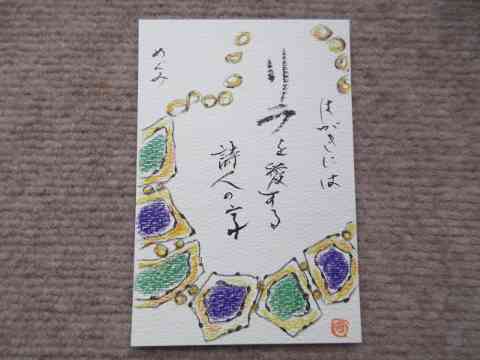 はがきには
リラを愛する
詩人の字
めぐみ